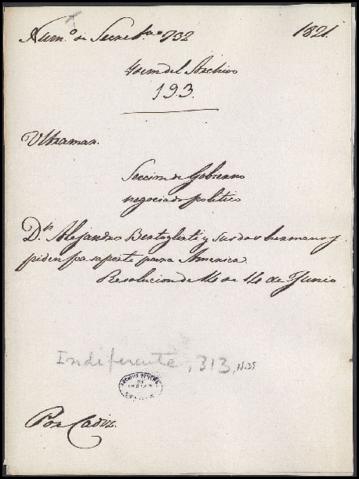 Num.º de Secret.ª 732 1821.
Idem del Archivo
193.
Ultramar.
Seccion de Gobierno
negociado politico
D.n Alejandro y sus dos hermanos
piden pasaporte para America.
Resolucion de 14 de Junio
Indiferente, 313, N.35
ARCHIVO GENERAL
DE
INDIAS
Por Cadiz.